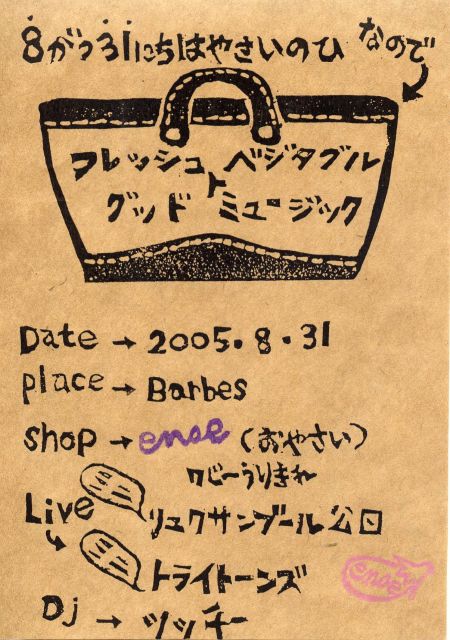 8がつ31にちはやさいのひ なので
フレッシュ ベジタブル
ト
グッド ミュージック
Date → 2005.8.31
place → Barbes
shop → enoe (おやさい)
Live リュクサンブール公園
トライトーンズ
Dj → ツッチー
enoe